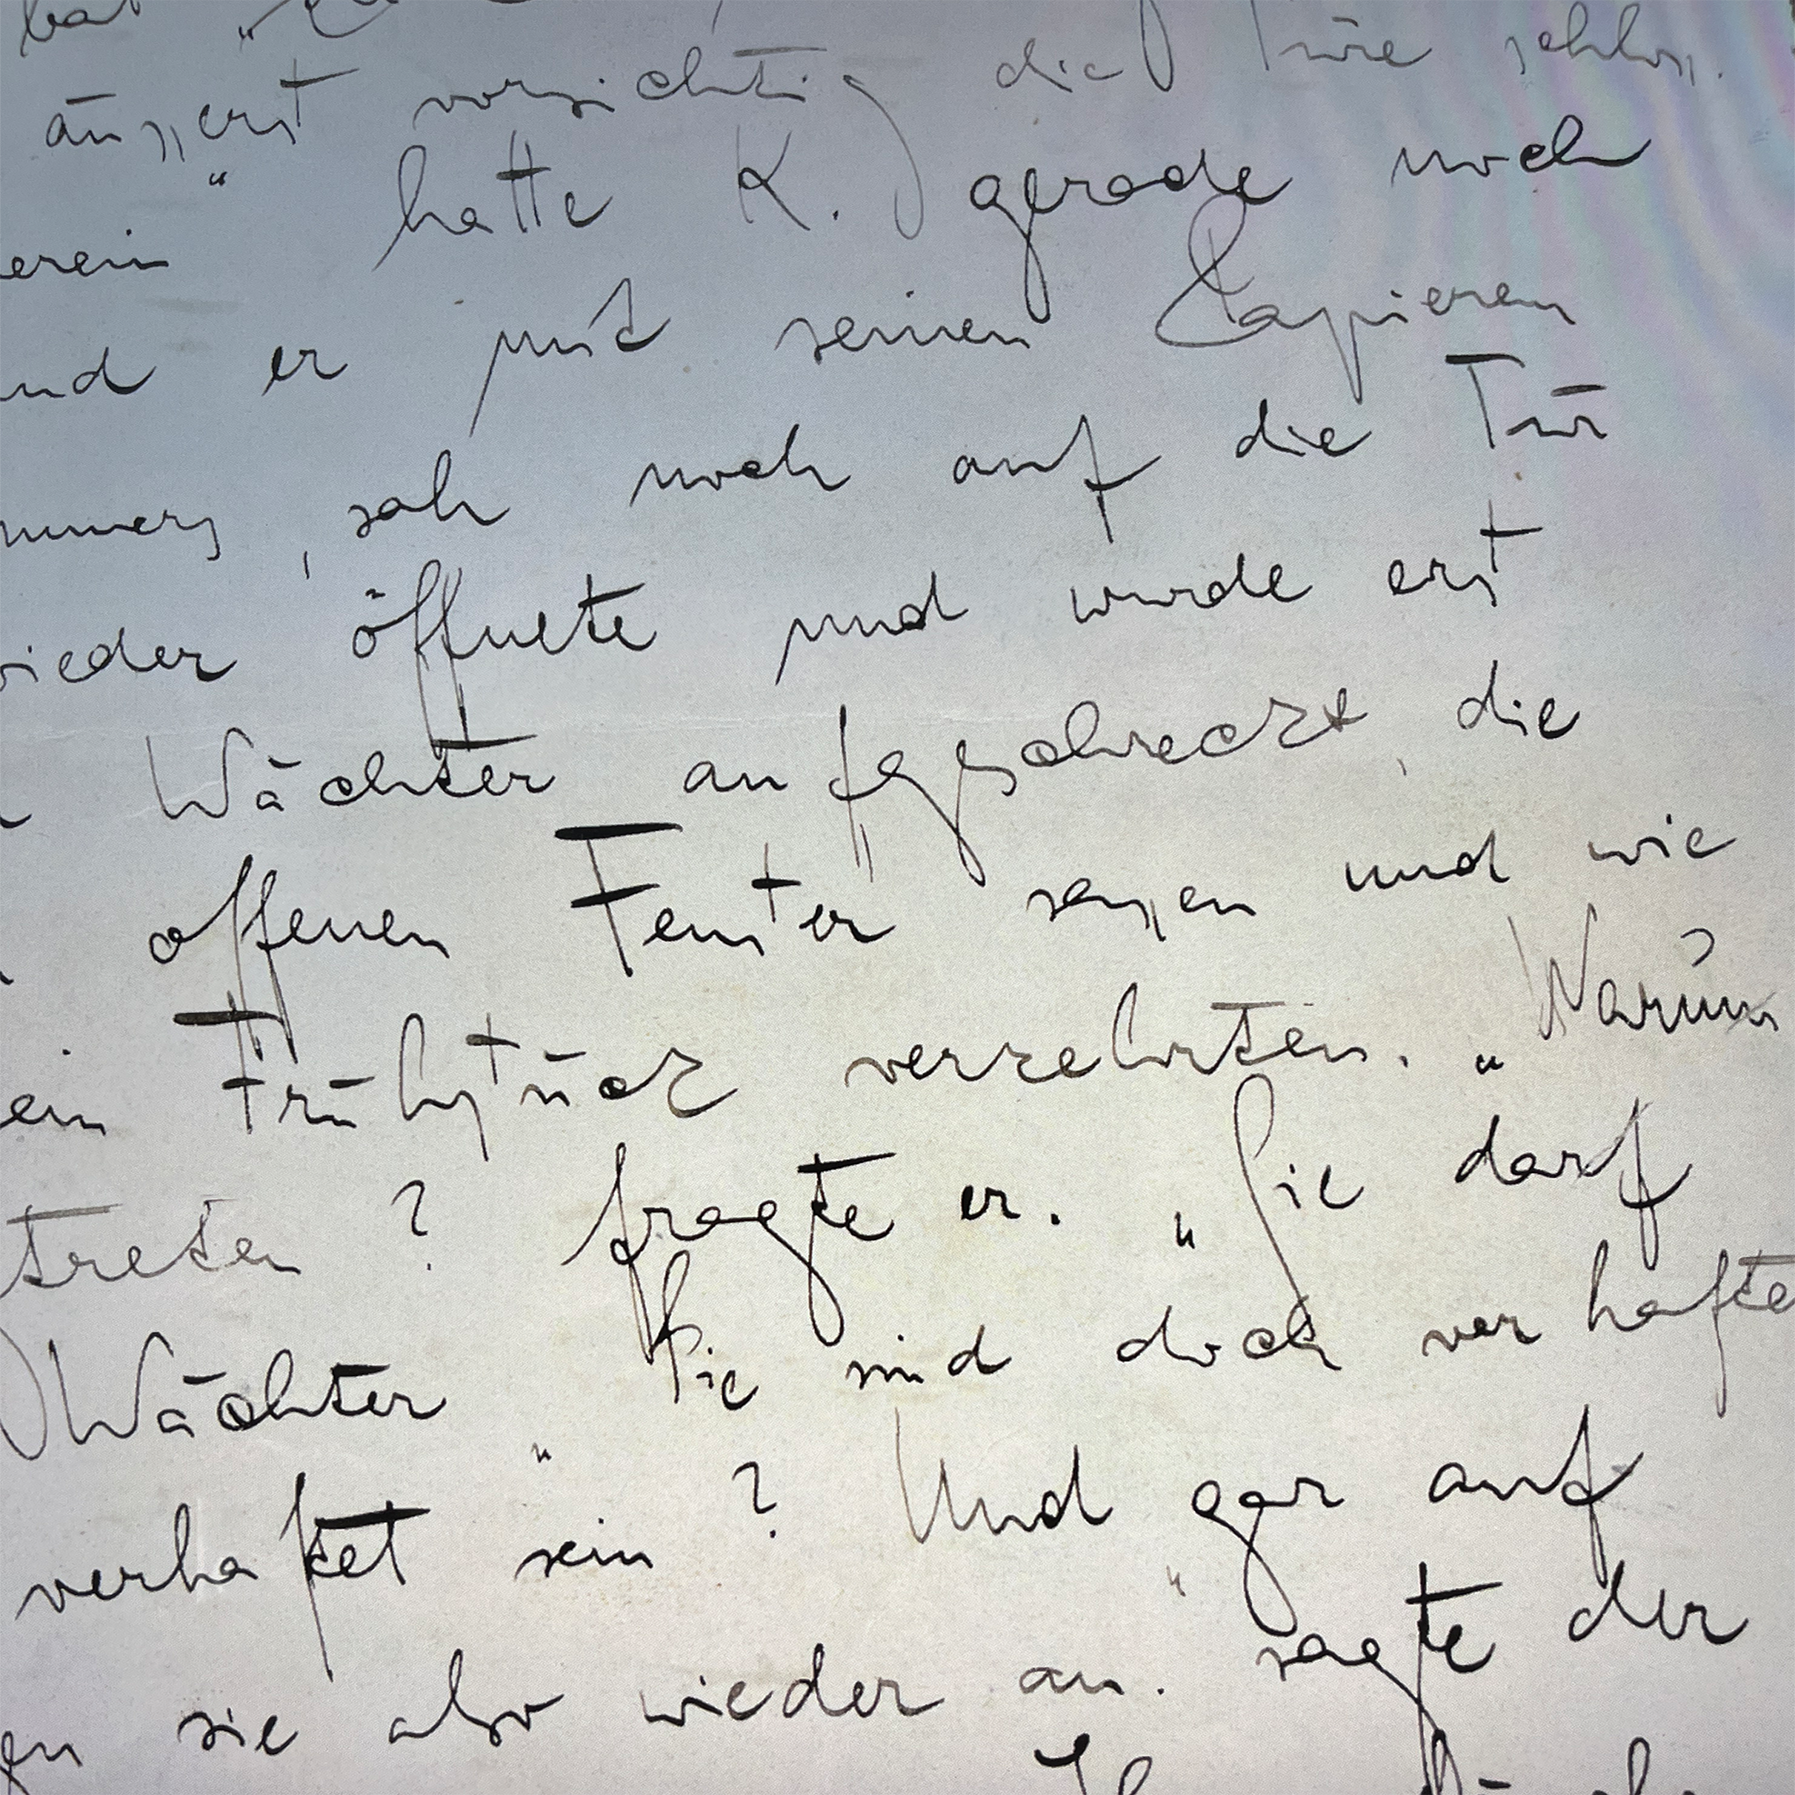 bat
äussert vorsichtig die Türe schloss.
erein“ hatte K. gerade noch
und er mit seinen Papieren
mmers, sah noch auf die Tür
wieder öffnete und wurde erst
Wächter aufgeschreckt, die
offenen Fenster sassen und wie
ein Frühstück verzehrten. „Warum
treten? fragte er. „Sie darf
Wächter „Sie sind doch verhafte
verhaftet sein? Und gar auf
en sie also wieder an.“ sagte der